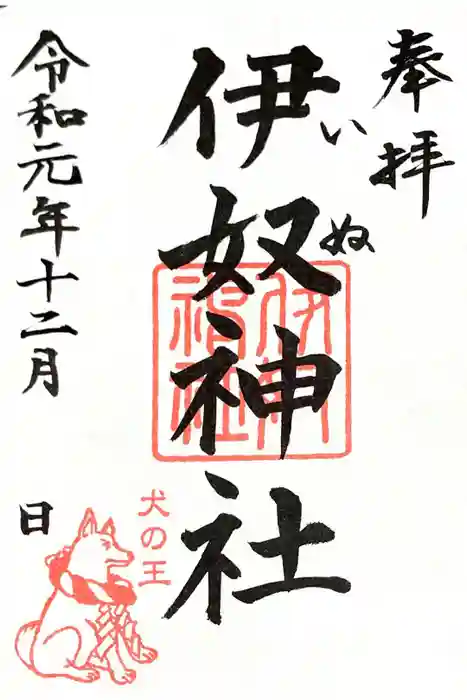 奉拝
伊奴神社
いぬ
令和元年十二月
日
犬の王